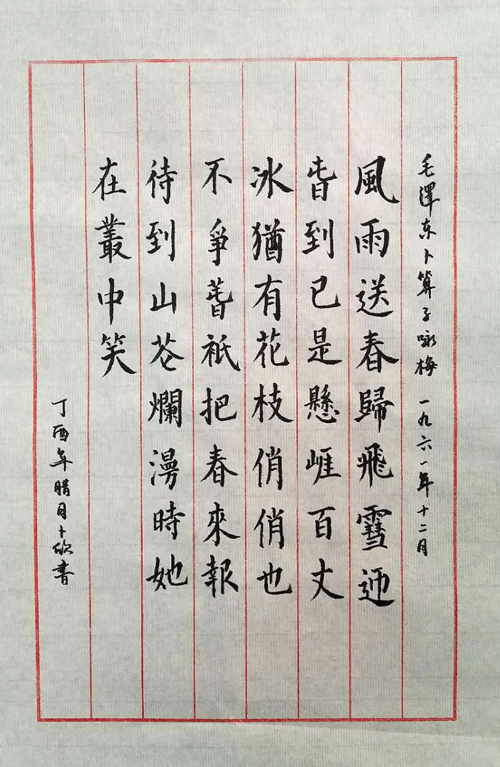 毛澤东卜算子咏梅 一九六一年十二月
風雨送春歸飛雪迎
旾到已是懸崖百丈
冰猶有花枝俏俏也
不爭萅祇把春來報
待到山芲爛漫時她
在叢中笑
丁酉年腊月卜欣書